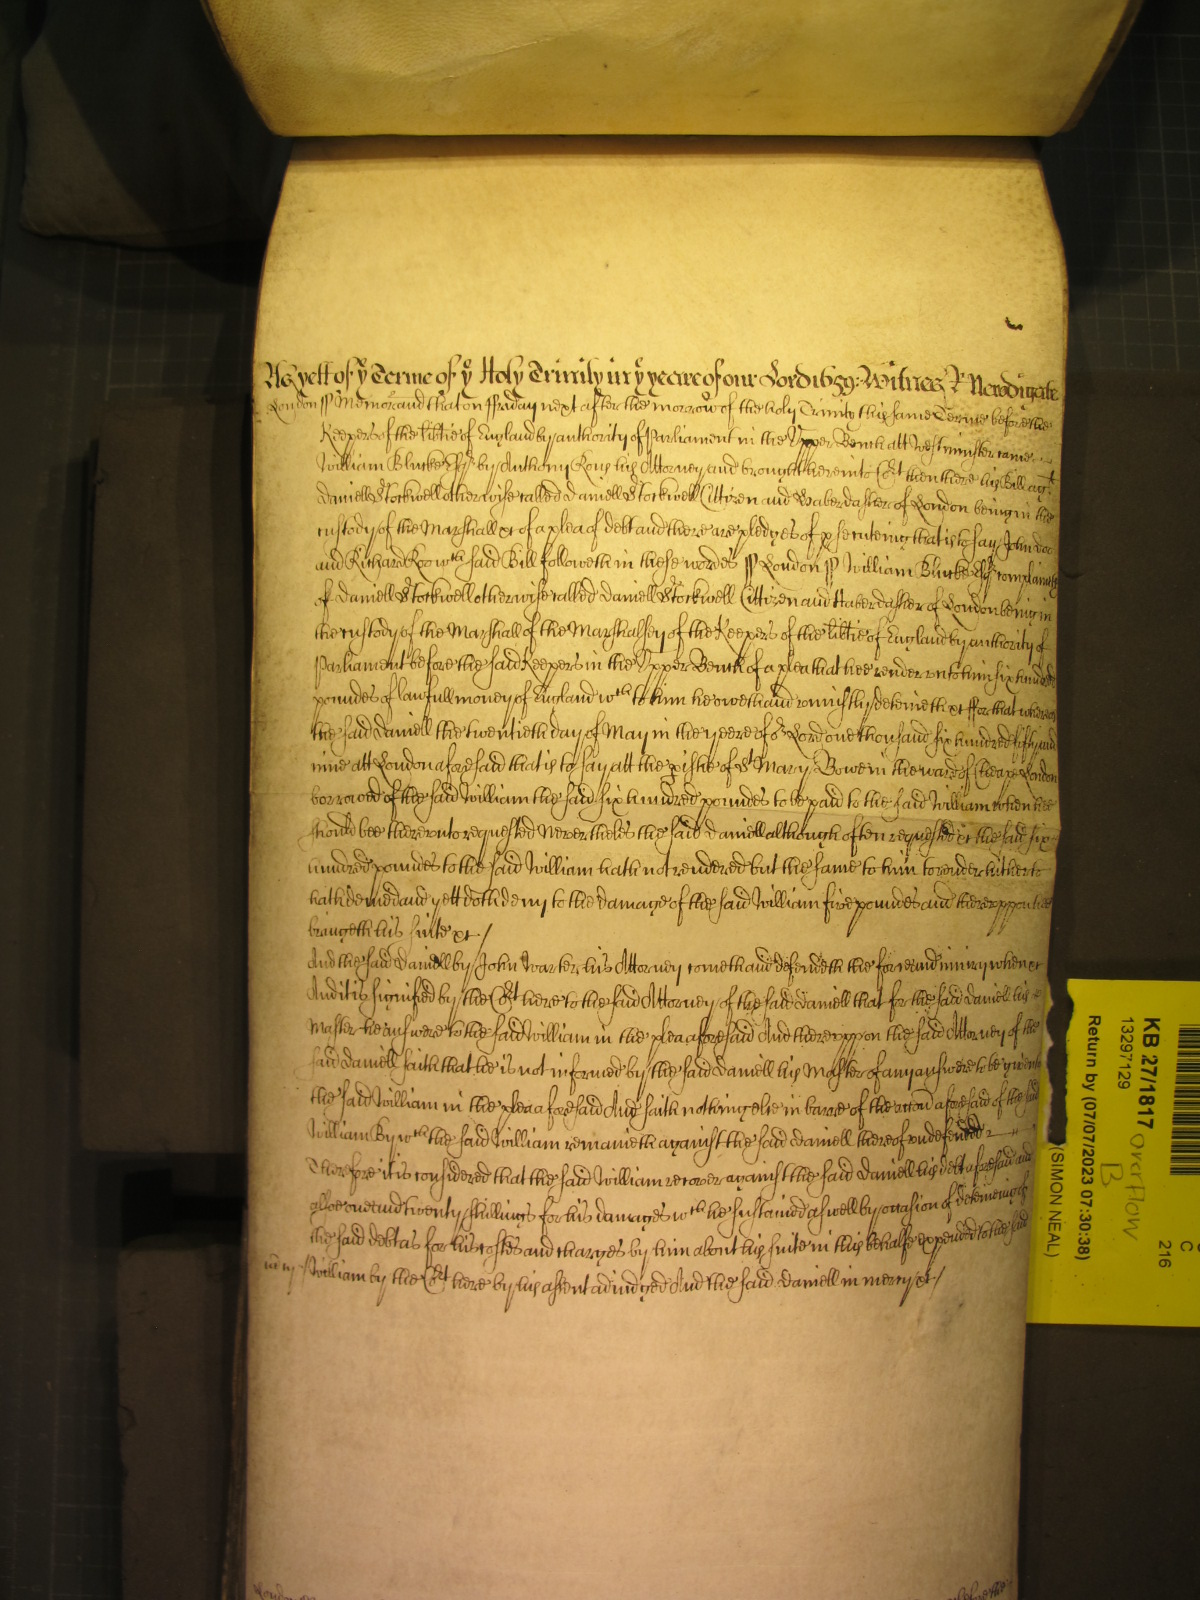 As yett of ye Terme of ye Holy Trinity in ye yeare of our Lord 1659: Witnes R Newdigate
London ss Memorand that on Friday next after the morrow of the holy Trinity this same Terme before the
Keepers of the libtie of England by authority of Parliament in the Upper Bench att Westminster came
William Blucke Esqr by Anthony Rous his Attorney and brought here into Cort then there his Bill agt
Daniell Stockwell otherwise called Daniell Stockwell Cittizen and Haberdasher of London being in the
custody of the Marshall &c of a plea of debt and there are pledges of psecuteing that is to say John doo
and Richard Roo wch said Bill followeth in these wordes ss London ss William Blucke Esqr complaines
of Daniell Stockwell otherwise called Daniell Stockwell Cittizen and Haberdasher of London being in
the custody of the Marshall of the Marshallsey of the Keepers of the libtie of England by authority of
Parliament before the said Keepers in the Upper Bench of a plea that hee render unto him six hundred
poundes of lawfull money of England wch to him he oweth and uniustly deteineth &c For that whereas
the said Daniell the twentieth day of May in the yeere of or Lord one thousand six hundred fifty and
nine att London aforesaid that is to say att the pishe of St Mary Bowe in the ward of Cheape London
borrowed of the said William the said six hundred poundes to be paid to the said William when hee
should bee thereunto requested Neverthelesse the said Daniell although often requested &c the said six
hundred poundes to the said William hath not rendered but the same to him to render hitherto
hath denied and yett doth deny to the damage of the said William five poundes and thereuppon hee
bringeth his suite &c /
And the said Daniell by John Warter his Attorney cometh and defendeth the force and iniury when &c
And it is signified by the Cort here to the said Attorney of the said Daniell that for the said Daniell his
Master he answere to the said William in the plea aforesaid And thereuppon the said Attorney of the
said Daniell saith that he is not informed by the said Daniell his Master of any answere to be given to
the said William in the plea aforesaid And saith nothing else in barre of the accon aforesaid of the said
William By wch the said William remaineth against the said Daniell thereof undefended
Therefore it is considered that the said William recover against the said Daniell his debt aforesaid and
alsoe one and twenty shillings for his damages wch he sustained aswell by occasion of deteineing of
the said debt as for his costes and charges by him about his suite in this behalfe expended to the said
in my / William by the Cort here by his assent adiudged And the said Daniell in mercy &c /
KB 27/1817
13297129
Return by (07/07/2023 07:30:38)
(SIMON NEAL)
overflow
B
C
216